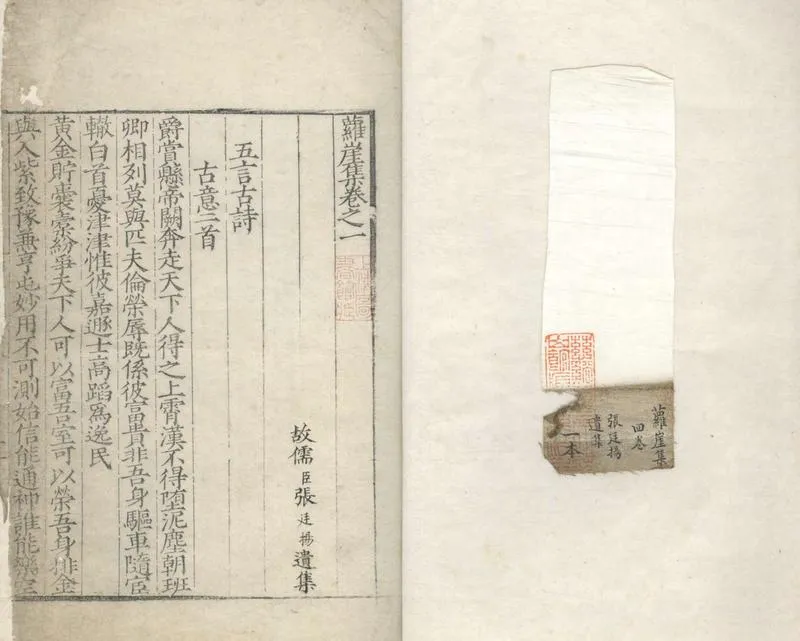 蘿崖集
四卷
張廷揚
遺集
一本
蘿崖集卷之一
故儒臣張廷揚遺集
五言古詩
古意三首
爵賞懸帝闕奔走天下人得之上霄漢不得墮泥塵朝班
卿相列莫與匹夫倫榮辱既係彼富貴非吾身驅車隨宦
轍白首憂津津惟彼嘉遯士高蹈爲逸民
黃金貯囊橐紛爭天下人可以富吾室可以榮吾身排金
與入紫致豫兼亨屯妙用不可測始信能通神誰能